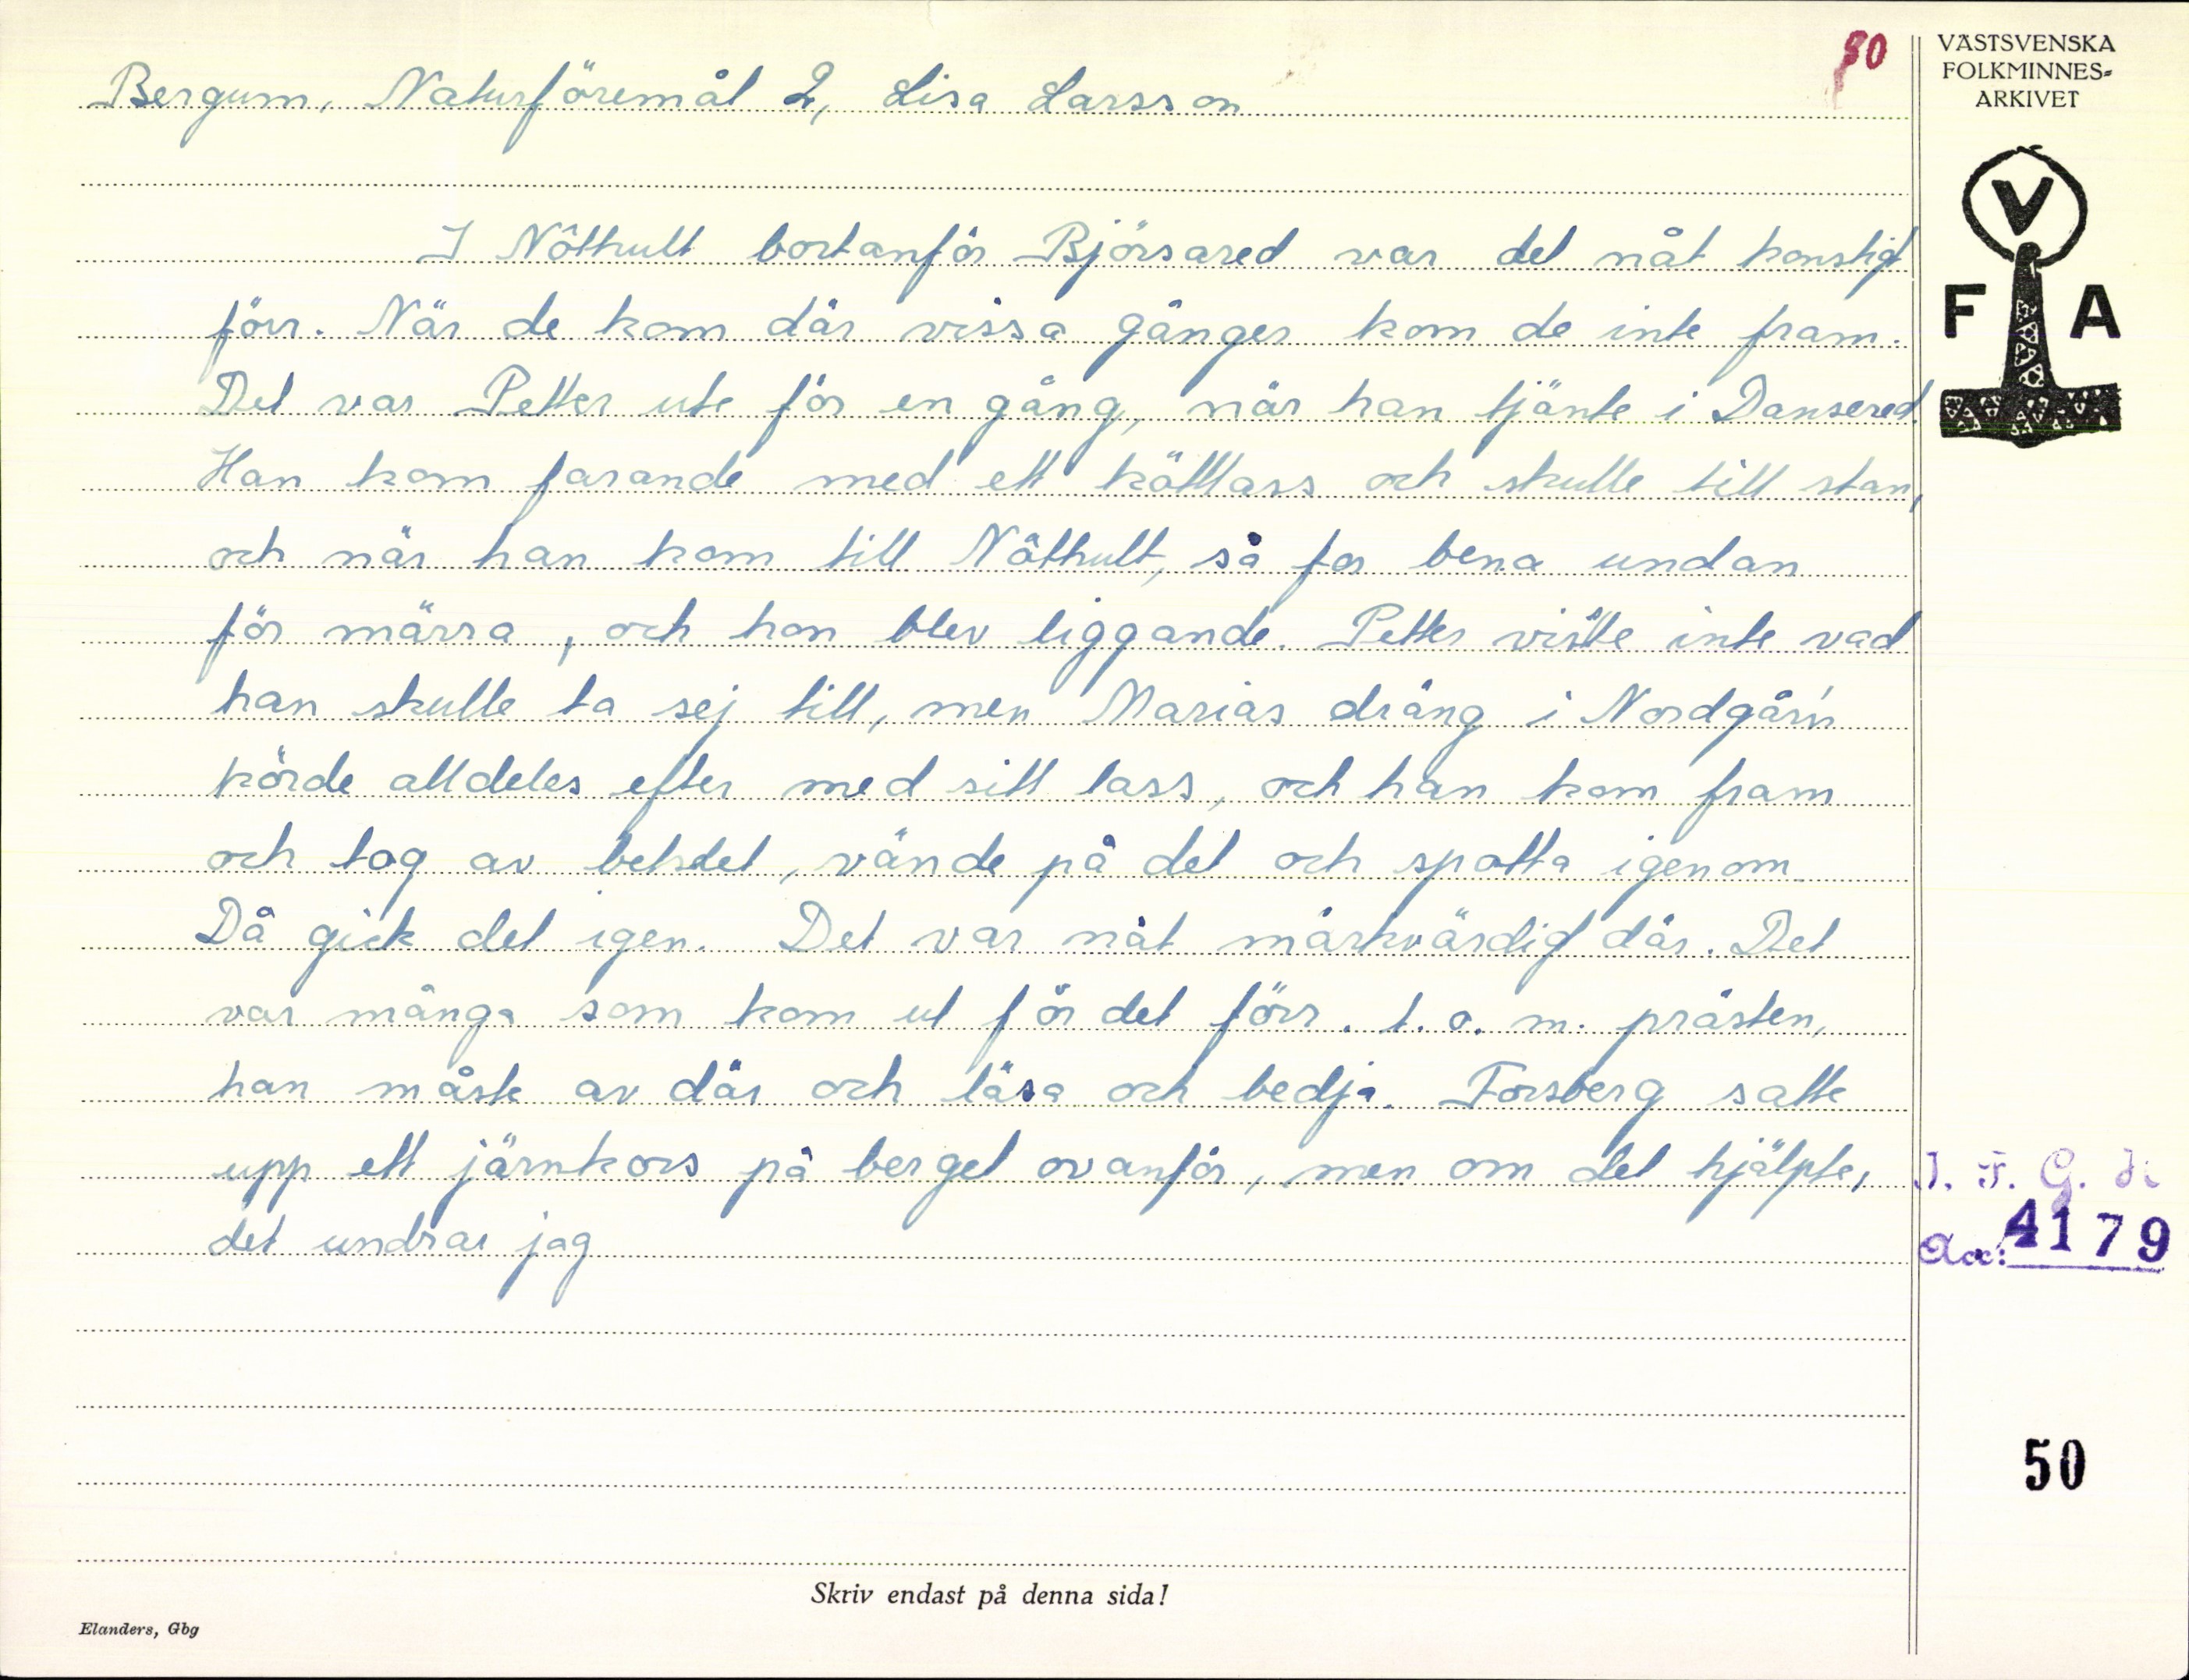 Bergum, Naturföremål 2, Lisa Larsson
50
VÄSTSVENSKA
FOLKMINNES-
ARKIVET
V
F A
I Nöthult bortanför Björsared var det nåt konstigt
förr. När de kom där vissa gånger kom de inte fram.
Det var Petter ute för en gång, när han tjänte i Dansered.
Han kom farande med ett köttlass och skulle till stan,
och när han kom till Nöthult, så for bena undan
för märra, och hon blev liggande. Petter visste inte vad
han skulle ta sej till, men Marias dräng i Nordgår'n
körde alldeles efter med sitt lass, och han kom fram
och tog av betslet, vände på det och spotta igenom
Då gick det igen. Det var nåt märkvärdigt där. Det
var många som kom ut för det förr. t.o.m. prästen,
han måste av där och läsa och bedja. Forsberg satte
upp ett järnkors på berget ovanför, men om det hjälpte,
det undrar jag
I. F. G. H
Acc: 4179
50
Skriv endast på denna sida!
Elanders, Gbg